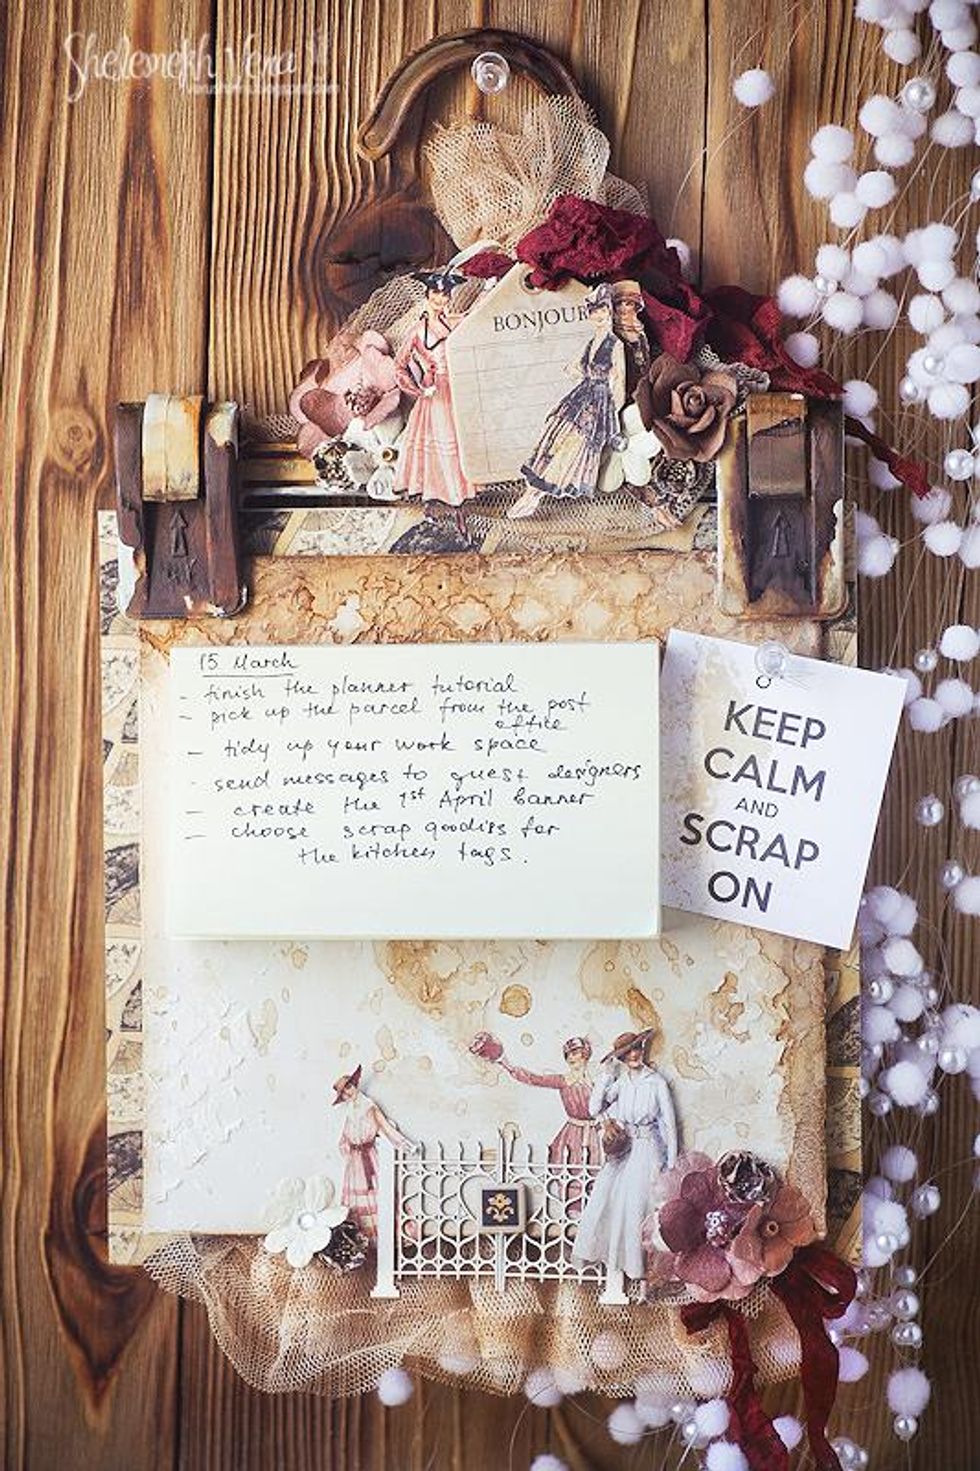 Shelemekh Vena
BONJOUR
15 March
- finish the planner tutorial
- pick up the parcel from the post
office
- tidy up your work space
- send messages to guest designers
- create the 1st April banner
- choose scrap goodies for
the kitchen tags.
KEEP
CALM
AND
SCRAP
ON